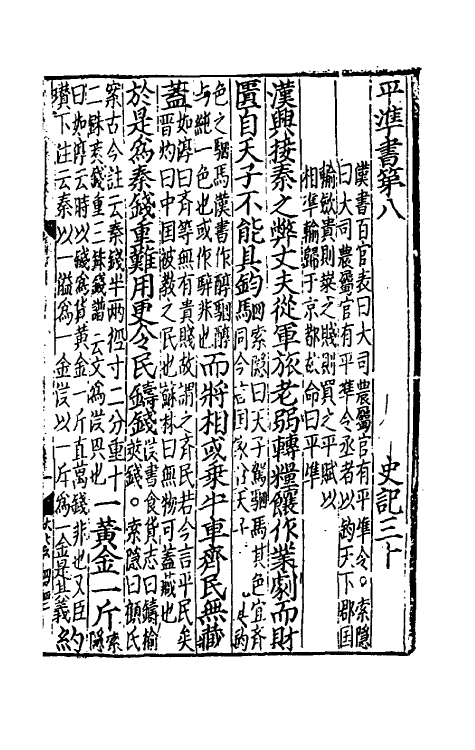 平準書第八
史記三十
漢書百官表曰大司農屬官有平準令。索隱
曰大司農屬官有平準令丞者以鈞天下郡国
輸斂貴則糶之賤則買之平賦以
相準輸歸于京都故命曰平準
漢興接秦之弊丈夫從軍旅老弱轉糧饟作業劇而財
匱自天子不能具鈞駟
索隱曰天子駕駟馬其色宜齊
同今言国家貧天子不能具鈞
色之駟馬漢書作醇駟醇
与純一色也或作騂非也
而將相或乗牛車齊民無藏
蓋
如淳曰齊等無有貴賤故謂之齊民若今言平民矣
晉灼曰中国被教之民也蘇林曰無物可蓋藏也
於是為秦錢重難用更令民鑄錢
漢書食貨志曰鑄榆
莢錢。索隱曰顧氏
案古今注云秦錢半兩徑寸二分重十
二銖莢錢重三銖錢譜云文為漢興也
一黃金一斤
索隱
曰如淳云時以錢為貨黃金一斤直萬錢非也又臣
瓚下注云秦以一鎰為一金漢以一斤為一金是其義
約